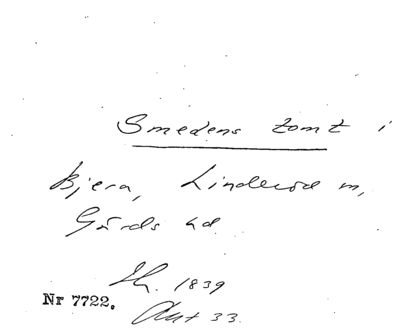 Smedens tomt i
Bjera, Linderöd m,
Gärds hd
Sk. 1839
Nr 7722. Akt 33.